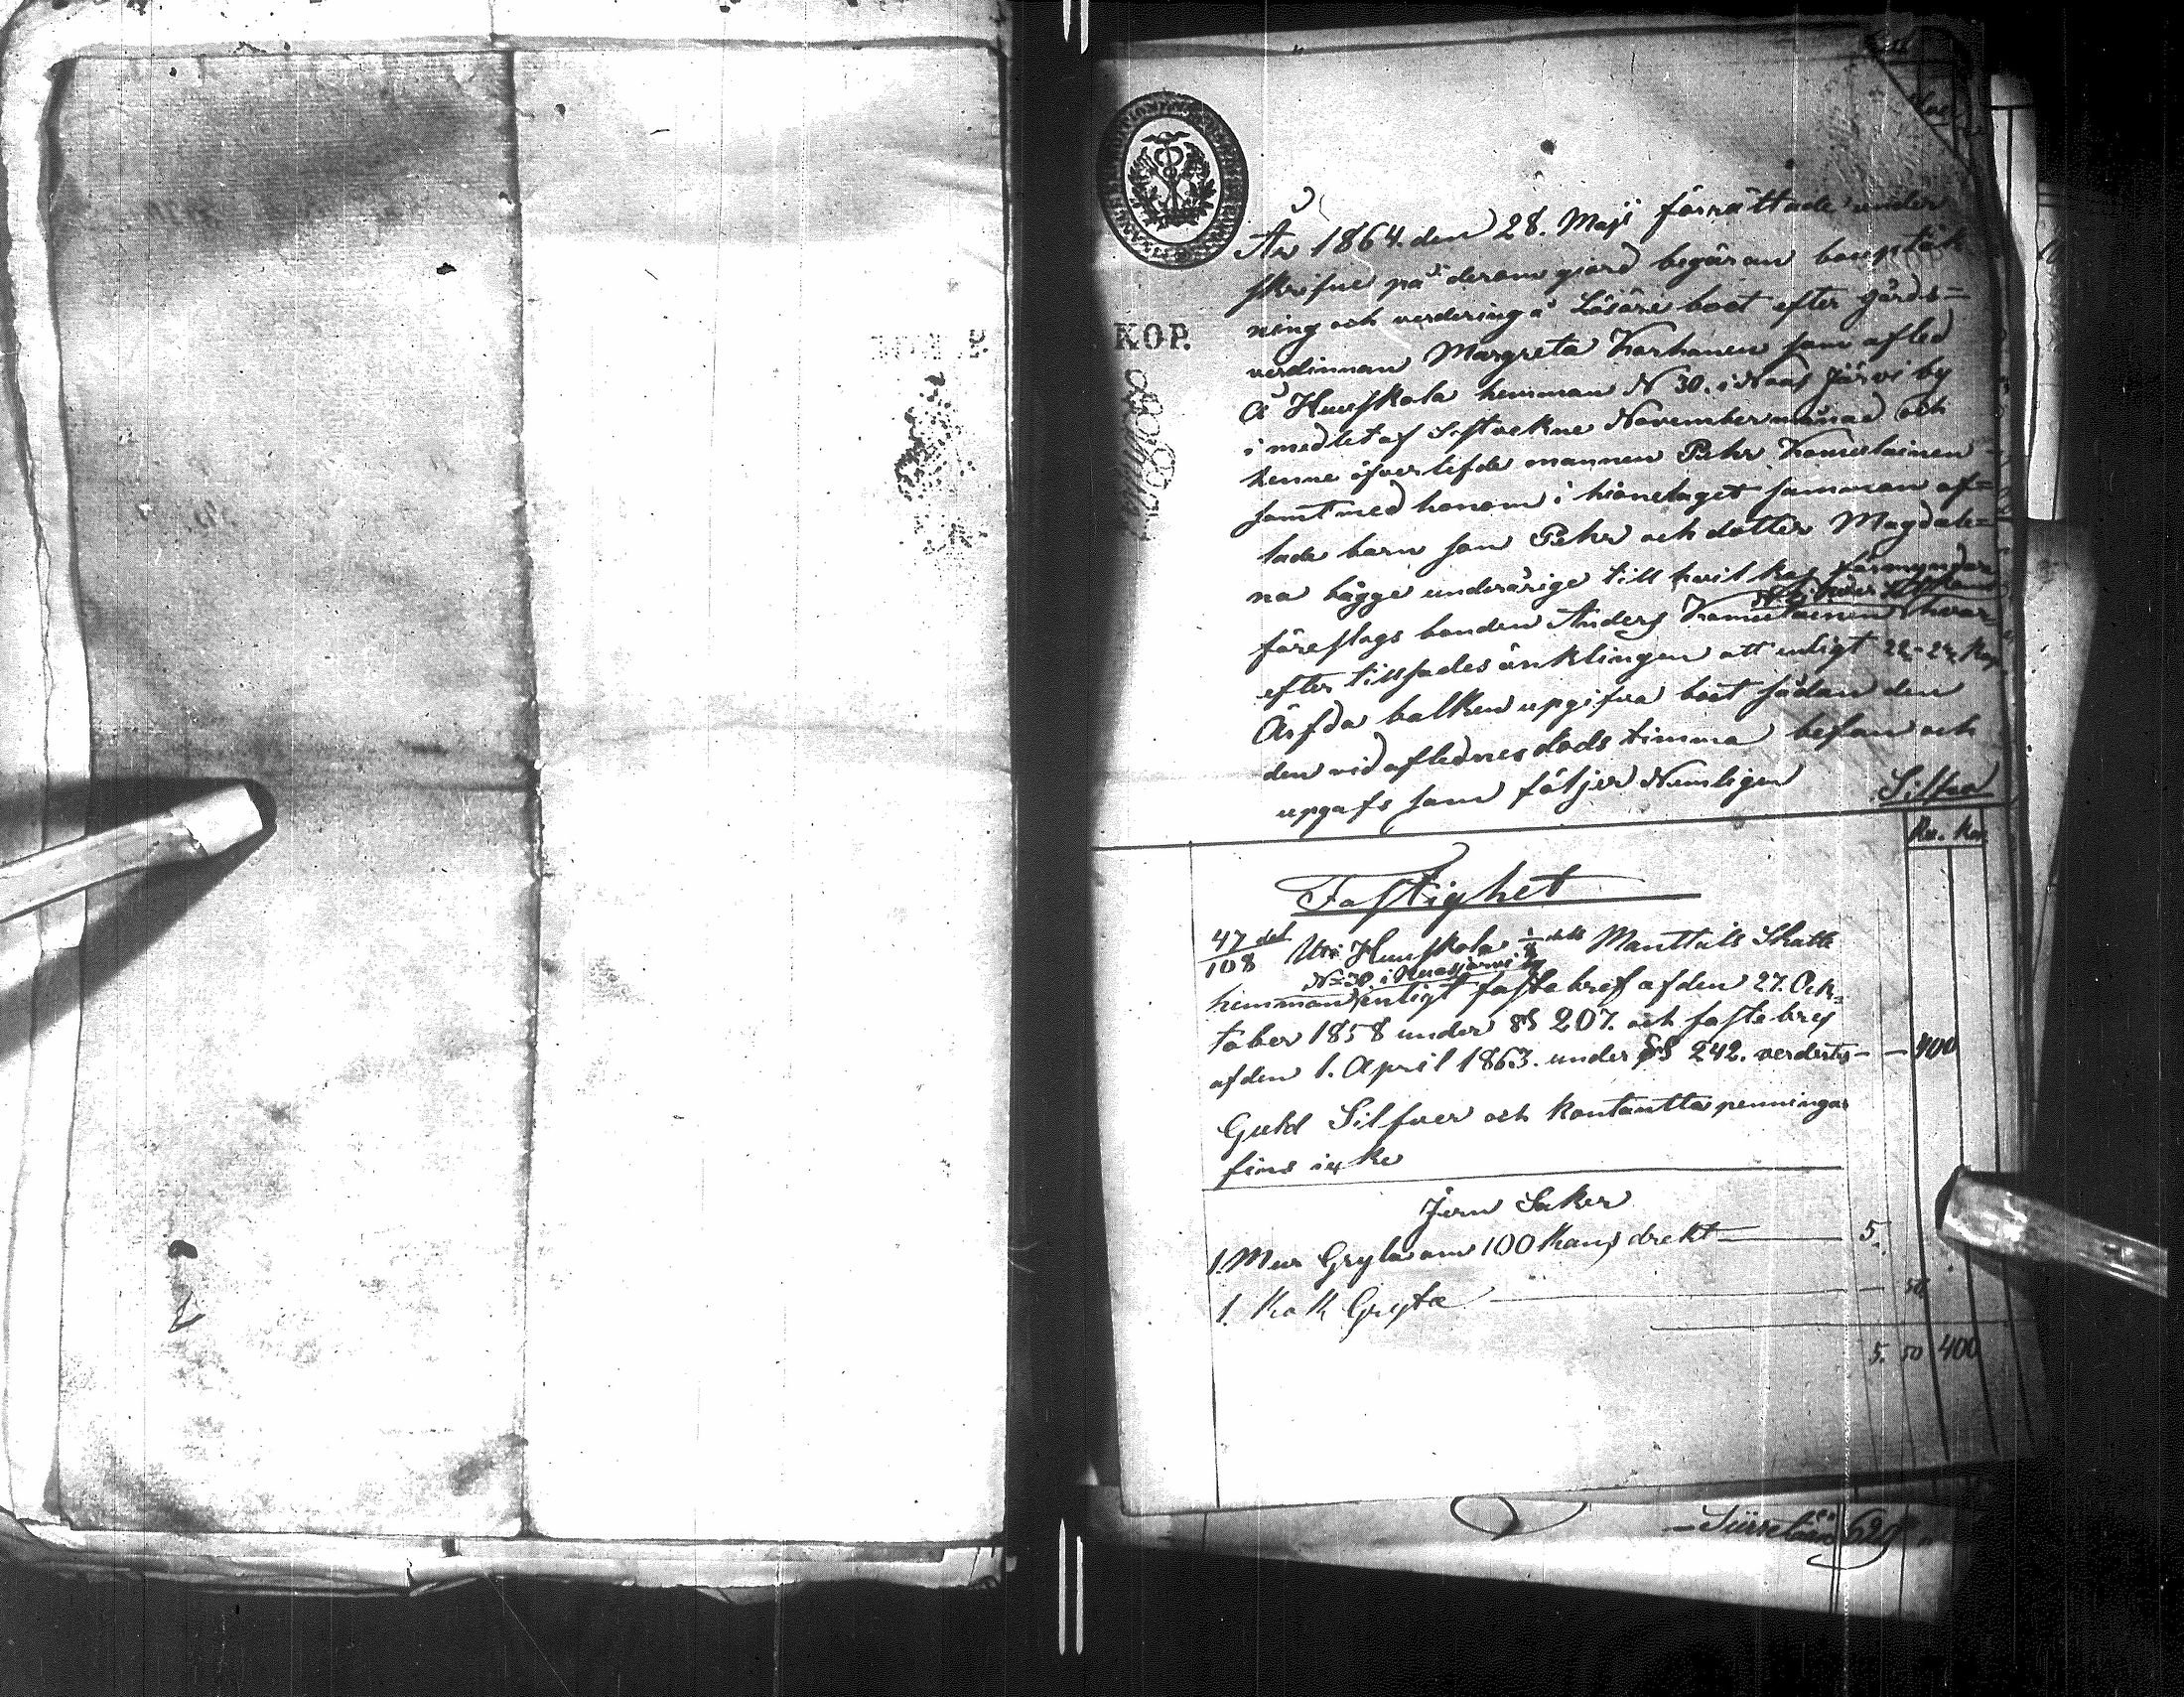 KOP.
År 1864. den 28. Maji förrättade under
skrifne på derom giord begäran bouptäk
ning och verdering å Lösöre boet efter gårds=
verdinnan Margreta Korhonen som afled
å Huuskola hemman N 30. i Naas Järvi by
i medlet af sistvekne November månad och
henne öfverlefde mannen Pehr Komulainen
samt med honom i hionelaget samman af=
lade barn son Pehr och dotter Magdale=
na bägge underårige till hvilkas förmyndare
föreslags bonden Anders Komulainen hvar
efter tillsades änklingen att enligt 22-24 Kap
Ärfda balken uppgifva boet sådan den
den vid aflednes dods timma befan och
upgafs som följer Nemligen
Silfver
Ru. Kop.
Fastighet
47 del
108 Uti Huuskola 1/8 dels Manttals Skatte
N=30. i Naasjärvi by
hemman enligt fastebref af den 27. Ock=
tober 1858 under §§ 207. och fastebref
af den 1. April 1863. under §§ 242. verdertes - - 400
Guld Silfver och kontantta penningar
fins icke
Jern Saker
1. Mur Gryta om 100 Kans drekt 5.
1. Kok Gryta 50
5. 50 400
- Siirretään 620